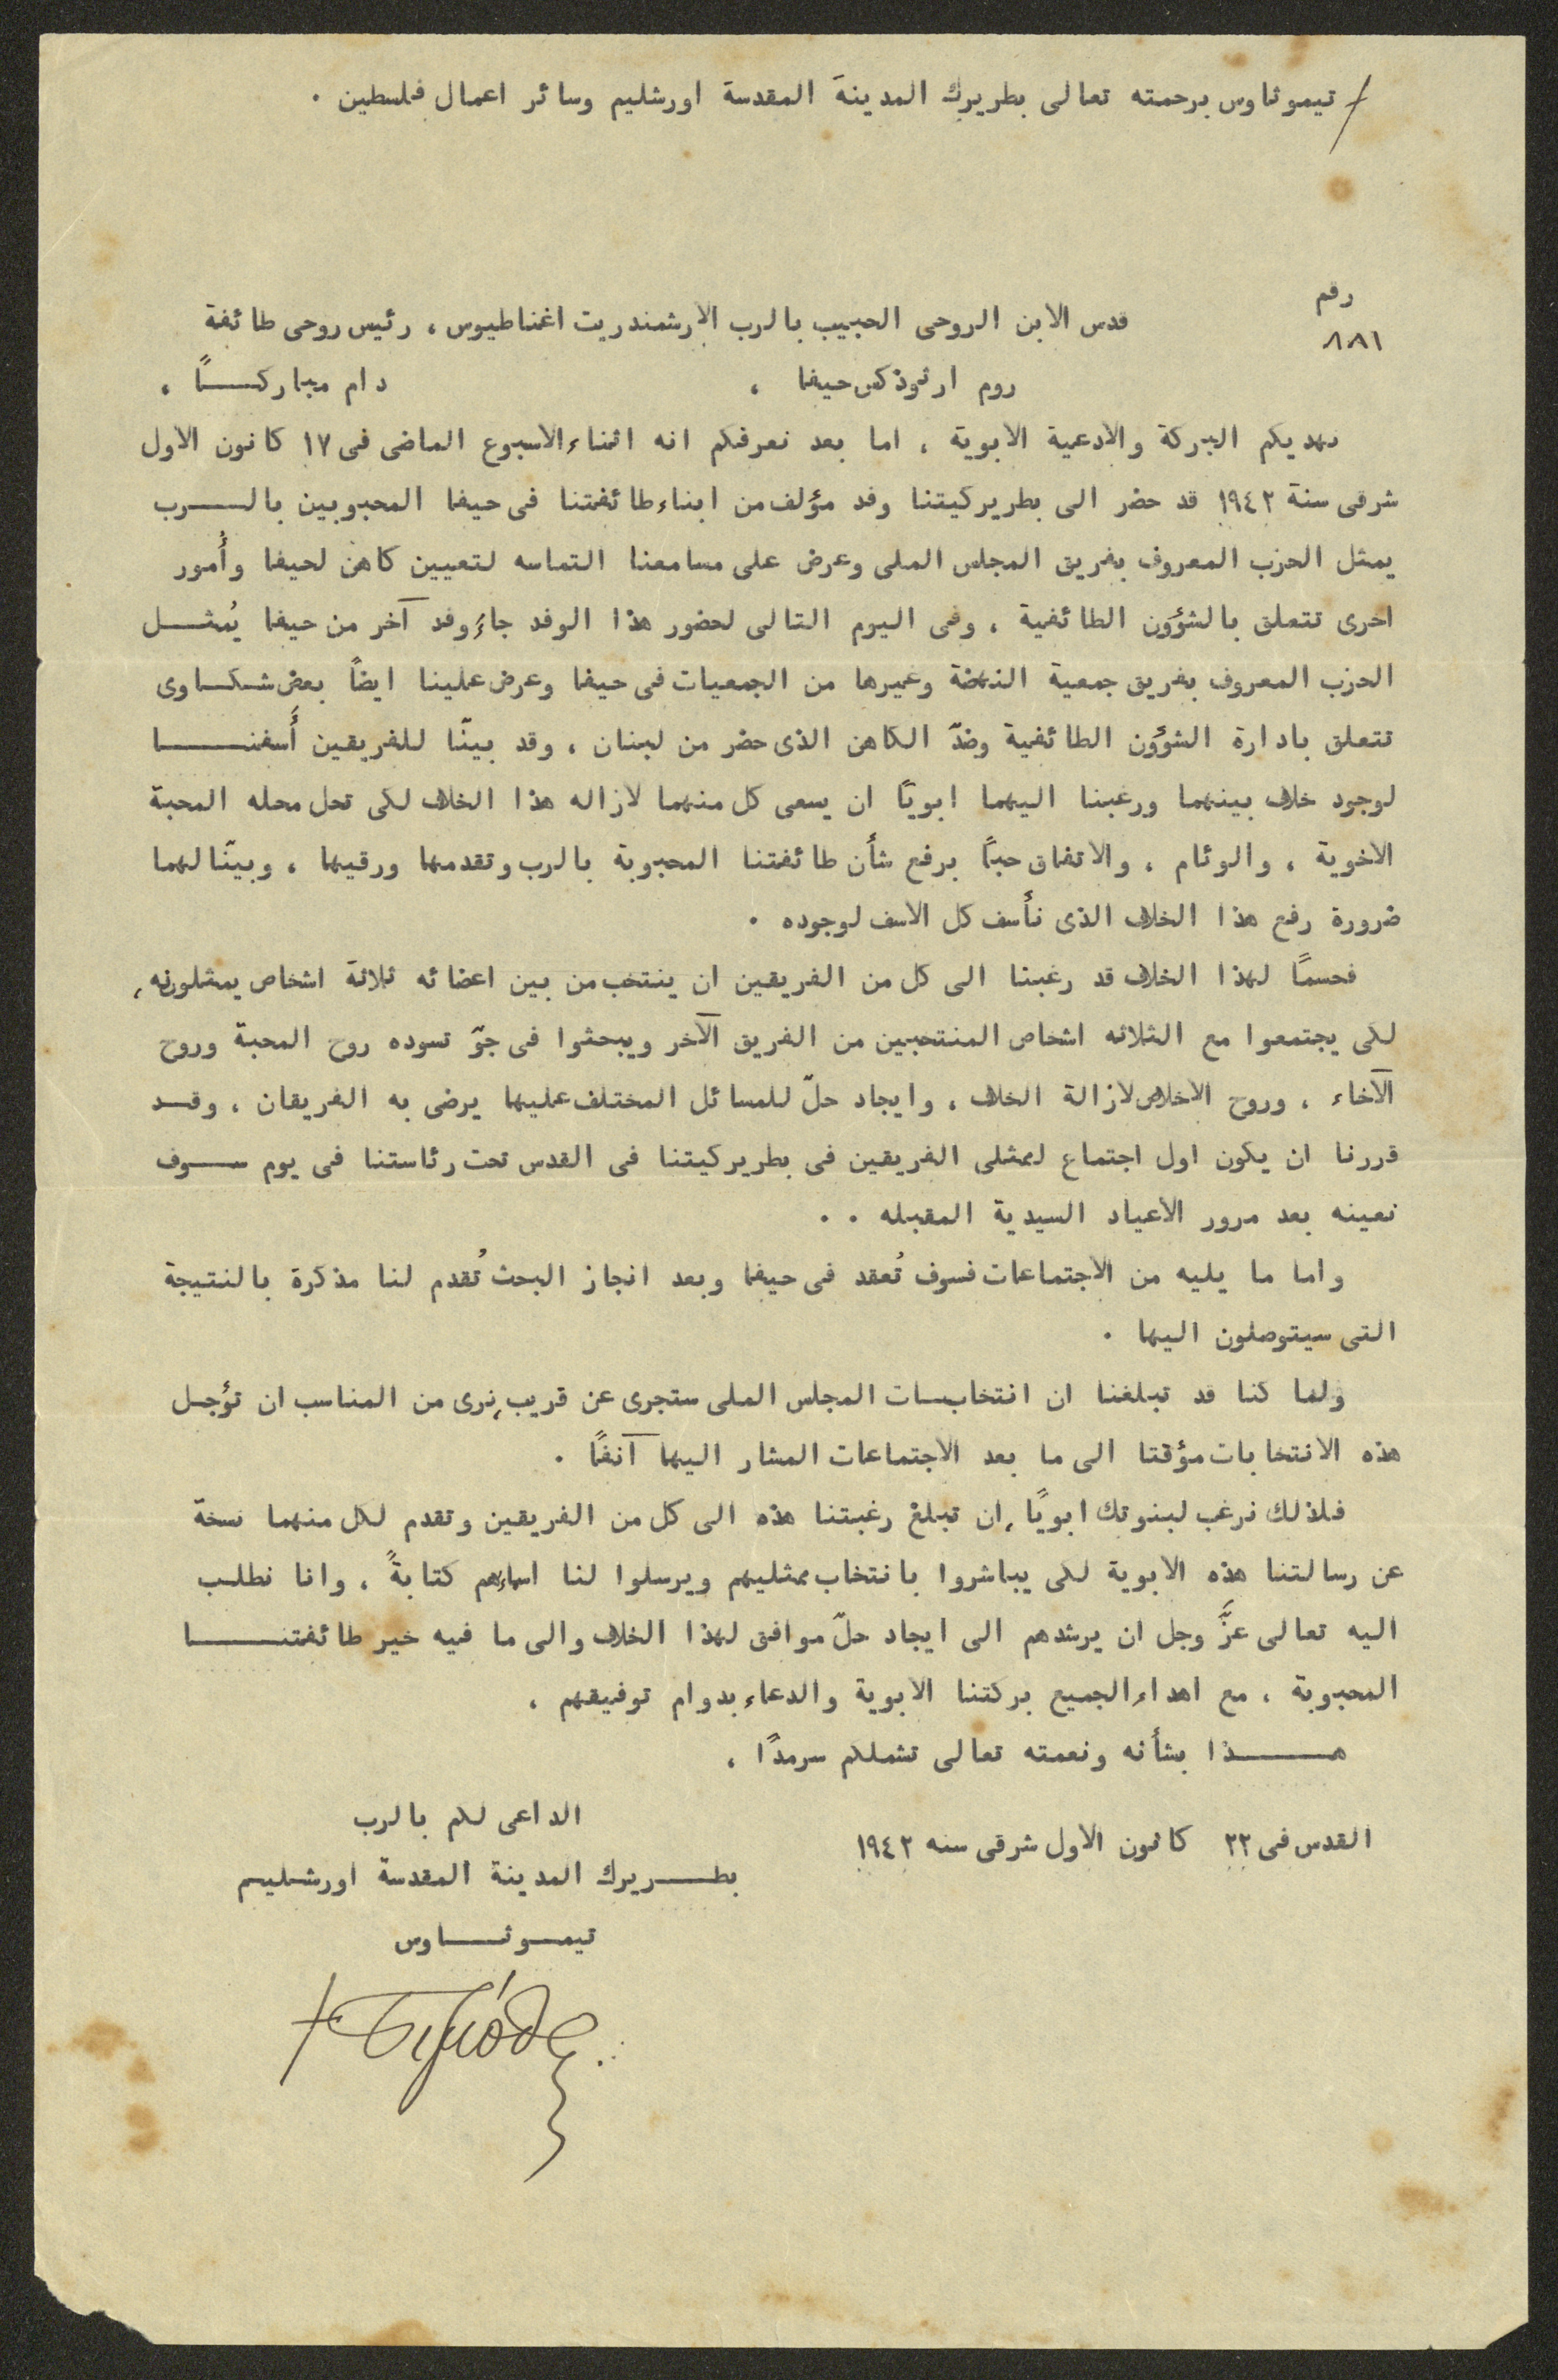 + تيموثاوس برحمته تعالى بطريرك المدينة المقدسة اورشليم وسائر اعمال فلسطين .
رقم
٨٨١
قدس الابن الروحى الحبيب بالرب الارشمندريت اغناطيوس ، رئيس روحى طائفة
روم ارثوذكس حيفا ، دام مباركـــاً ،
نهديكم البركة والادعية الابوية ، اما بعد نعرفكم انه اثناء الاسبوع الماضى فى ١٧ كانون الاول
شرقى سنة ١٩٤٢ قد حضر الى بطريركيتنا وفد مؤلف من ابناء طائفتنا فى حيفا المحبوبين بالـــرب
يمثل الحزب المعروف بفريق المجلس الملى وعرض على مسامعنا التماسه لتعيين كاهن لحيفا وأُمور
اخرى تتعلق بالشؤون الطائفية ، وفى اليوم التالى لحضور هذا الوفد جاءَ وفد آخر من حيفا يُمثـــل
الحزب المعروف بفريق جمعية النهضة وغيرها من الجمعيات فى حيفا وعرض علينا ايضاً بعض شكـاوى
تتعلق بادارة الشؤون الطائفية وضدّ الكاهن الذى حضر من لبنان ، وقد بينّا للفريقين أَسفنـــــا
لوجود خلاف بينهما ورغبنا اليهما ابوياً ان يسعى كل منهما لازاله هذا الخلاف لكى تحل محله المحبة
الاخوية ، والوئام ، والاتفاق حباً برفع شأن طائفتنا المحبوبة بالرب وتقدمها ورقيها ، وبينّا لهما
ضرورة رفع هذا الخلاف الذى نأسف كل الاسف لوجوده .
فحسماً لهذا الخلاف قد رغبنا الى كل من الفريقين ان ينتخب من بين اعضائه ثلاثة اشخاص يمثلونه ،
لكى يجتمعوا مع الثلاثه اشخاص المنتخبين من الفريق الآخر ويبحثوا فى جوّ تسوده روح المحبة وروح
الآخاء ، وروح الاخلاص لازالة الخلاف ، وايجاد حلّ للمسائل المختلف عليها يرضى به الفريقان ، وقـــد
قررنا ان يكون اول اجتماع لممثلى الفريقين فى بطريركيتنا فى القدس تحت رئاستنا فى يوم ســـوف
نعينه بعد مرور الاعياد السيدية المقبله . .
واما ما يليه من الاجتماعات فسوف تُعقد فى حيفا وبعد انجاز البحث تُقدم لنا مذكرة بالنتيجة
التى سيتوصلون اليها .
ولما كنا قد تبلغنا ان انتخابـات المجلس الملى ستجرى عن قريب ، نرى من المناسب ان تؤجـل
هذه الانتخابات مؤقتا الى ما بعد الاجتماعات المشار اليها آنفاً .
فلذلك نرغب لبنوتك ابوياً ، ان تبلغ رغبتنا هذه الى كل من الفريقين وتقدم لكل منهما نسخة
عن رسالتنا هذه الابوية لكى يباشروا بانتخاب ممثليهم ويرسلوا لنا اسماءهم كتابةً ، وانا نطلـب
اليه تعالى عزَّ وجل ان يرشدهم الى ايجاد حلّ موافق لهذا الخلاف والى ما فيه خير طائفتنـــــا
المحبوبة ، مع اهداء الجميع بركتنا الابوية والدعاء بدوام توفيقهم ،
هـــــذا بشأنه ونعمته تعالى تشملكم سرمداً ،
القدس فى ٢٢ كانون الاول شرقى سنه ١٩٤٢
الداعى لكم بالرب
بطـــريرك المدينة المقدسة اورشليـم
تيمـوثـــاوس